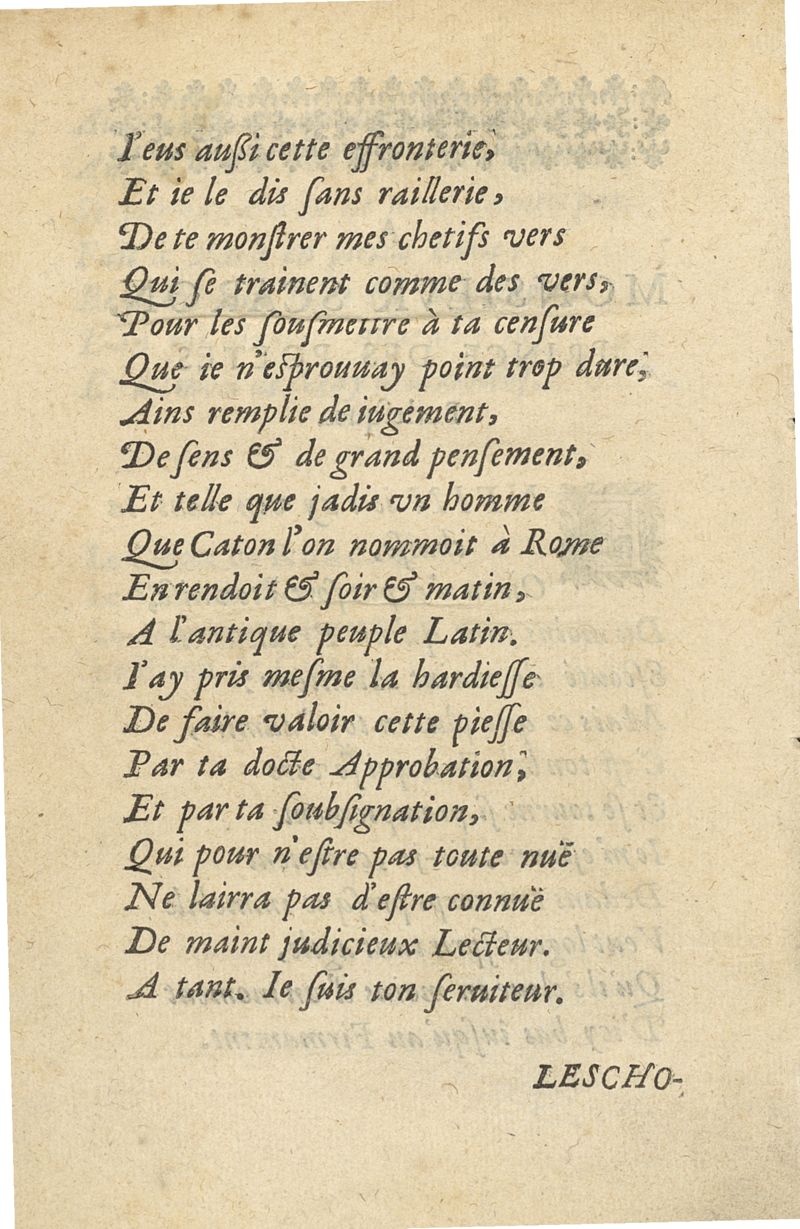 I'eus auſſi cette effronterie,
Et ie le dis ſans raillerie,
De te monſtrer mes chetifs vers
Qui ſe trainent comme des vers,
Pour les ſouſmettre à ta cenſure
Que ie n'eſprouuay point trop dure,
Ains remplie de iugement,
De ſens & de grand penſement,
Et telle que jadis vn homme
Que Caton l'on nommoit à Rome
En rendoit & ſoir & matin,
A l'antique peuple Latin.
I'ay pris meſme la hardieſſe
De faire valoir cette pieſſe
Par ta docte Approbation,
Et par ta ſoubſignation,
Qui pour n'eſtre pas toute nuë
Ne lairra pas d'eſtre connuë
De maint judicieux Lecteur.
A tant. Ie ſuis ton ſeruiteur.
LESCHO-